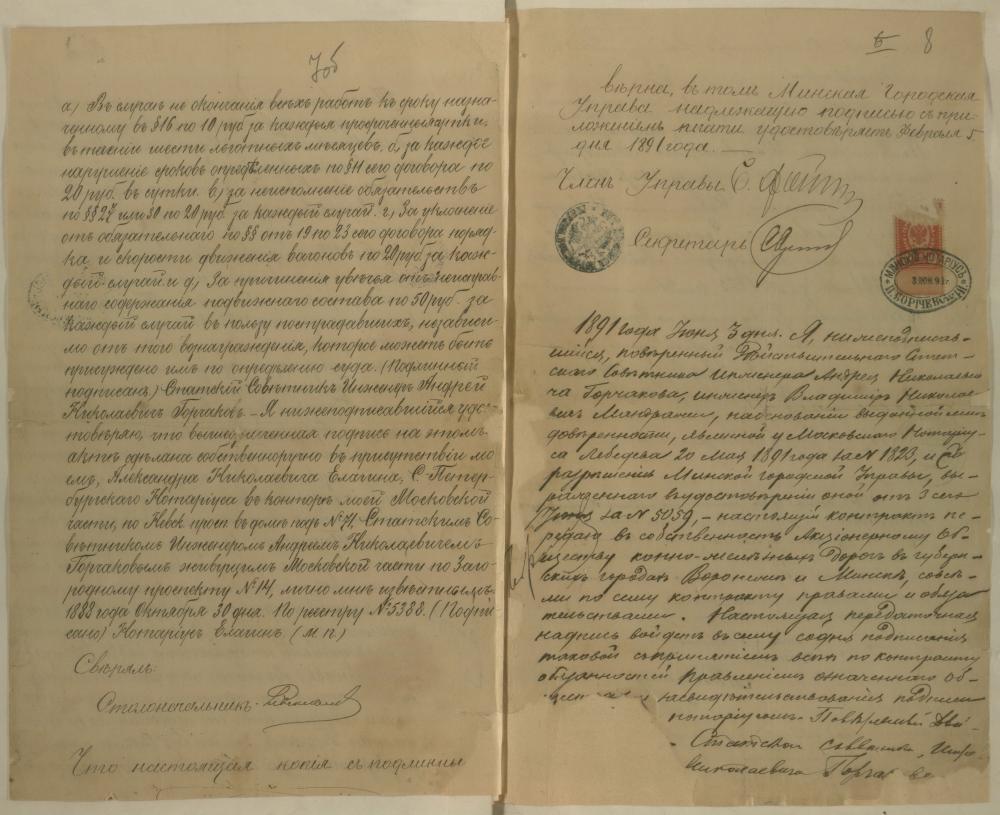 7об
а) Въ случаѣ не окончанія всѣхъ работъ къ сроку назна-
ченному въ §16 по 10 руб за каждыя просроченныя сутки,
въ теченіи шести льготныхъ мѣсяцевъ. б) за каждое
нарушеніе сроковъ опредѣленныхъ по §11 сего договора по
20 руб. въ сутки. в) за неисполненіе обязательствъ
по §§27 или 30 по 20 руб. за каждый случай. г) За уклоненіе
отъ обязательнаго по §§ отъ 19 по 23 сего договора поряд-
ка и скорости движенія вагоновъ по 20 руб за каж-
дый случай и д) За причиненія увѣчья отъ неисправ-
наго содержанія подвижнаго состава по 50 руб. за
каждый случай въ пользу пострадавшихъ, независи-
мо отъ того вознагражденія, которое можетъ быть
присуждено имъ по опредѣленію суда. (Подлинный
подписалъ) Статскій Совѣтникъ Инженеръ Андрей
Николаевичъ Горчаковъ. – Я нижеподписавшійся удо-
стовѣряю, что вышеозначенная подпись на этомъ
актѣ сдѣлана собственноручно въ присутствіи мо-
емъ, Александра Николаевича Елагина, С. Петер-
бургскаго Нотаріуса въ конторѣ моей Московской
части, по Невск. просп. въ домѣ подъ №71, Статскимъ Со-
вѣтникомъ Инженеромъ Андреемъ Николаевичемъ
Горчаковымъ живущимъ Московской части по Заго-
родному проспекту №14, лично мнѣ извѣстнымъ.
1888 года Октября 30 дня. По реестру №5388. (Подпи-
салъ) Нотаріусъ Елагинъ (М. П.)
Свѣрялъ:
Столоначальникъ
Что настоящая копія съ подлинны
8
вѣрна, въ томъ Минская Городская
Управа надлежащею подписью съ при-
ложеніемъ печати удостовѣряетъ Февраля 5
дня 1891 года.
Членъ Управы
Секретарь
МИНСКІЙ НОТАРІУСЪ
1891 года Іюня 3 дня. Я, нижеподписав-
шійся, повѣренный Дѣйствительнаго Стат-
скаго Совѣтника Инженера Андрея Николаеви-
ча Горчакова, инженеръ Владиміръ Николае-
вичъ, на основаніи выданной мнѣ
довѣренности, явленной у Московскаго Нотаріу-
са Лебедева 20 Мая 1891 года за № 1823, и съ
разрѣшенія Минской городской Управы, вы-
раженнаго въ удостовѣреніи оной отъ 3 сего
Іюня за № 5059, – настоящій контрактъ пе-
редаю въ собственность Акціонерному Об-
ществу конно-желѣзныхъ дорогъ въ губерн-
скихъ городахъ Воронежѣ и Минскѣ, со всѣ-
ми по сему контракту правами и обяза-
тельствами. Настоящая передаточная
надпись войдетъ въ силу со дня подписанія
таковой съ принятіемъ всѣхъ по контракту
обязанностей Правленіемъ означеннаго Об-
щества и засвидѣтельствованія подписи
нотаріусомъ. Повѣренный Дѣй-
Статскаго совѣтника, Инже
Николаевича Горчакова